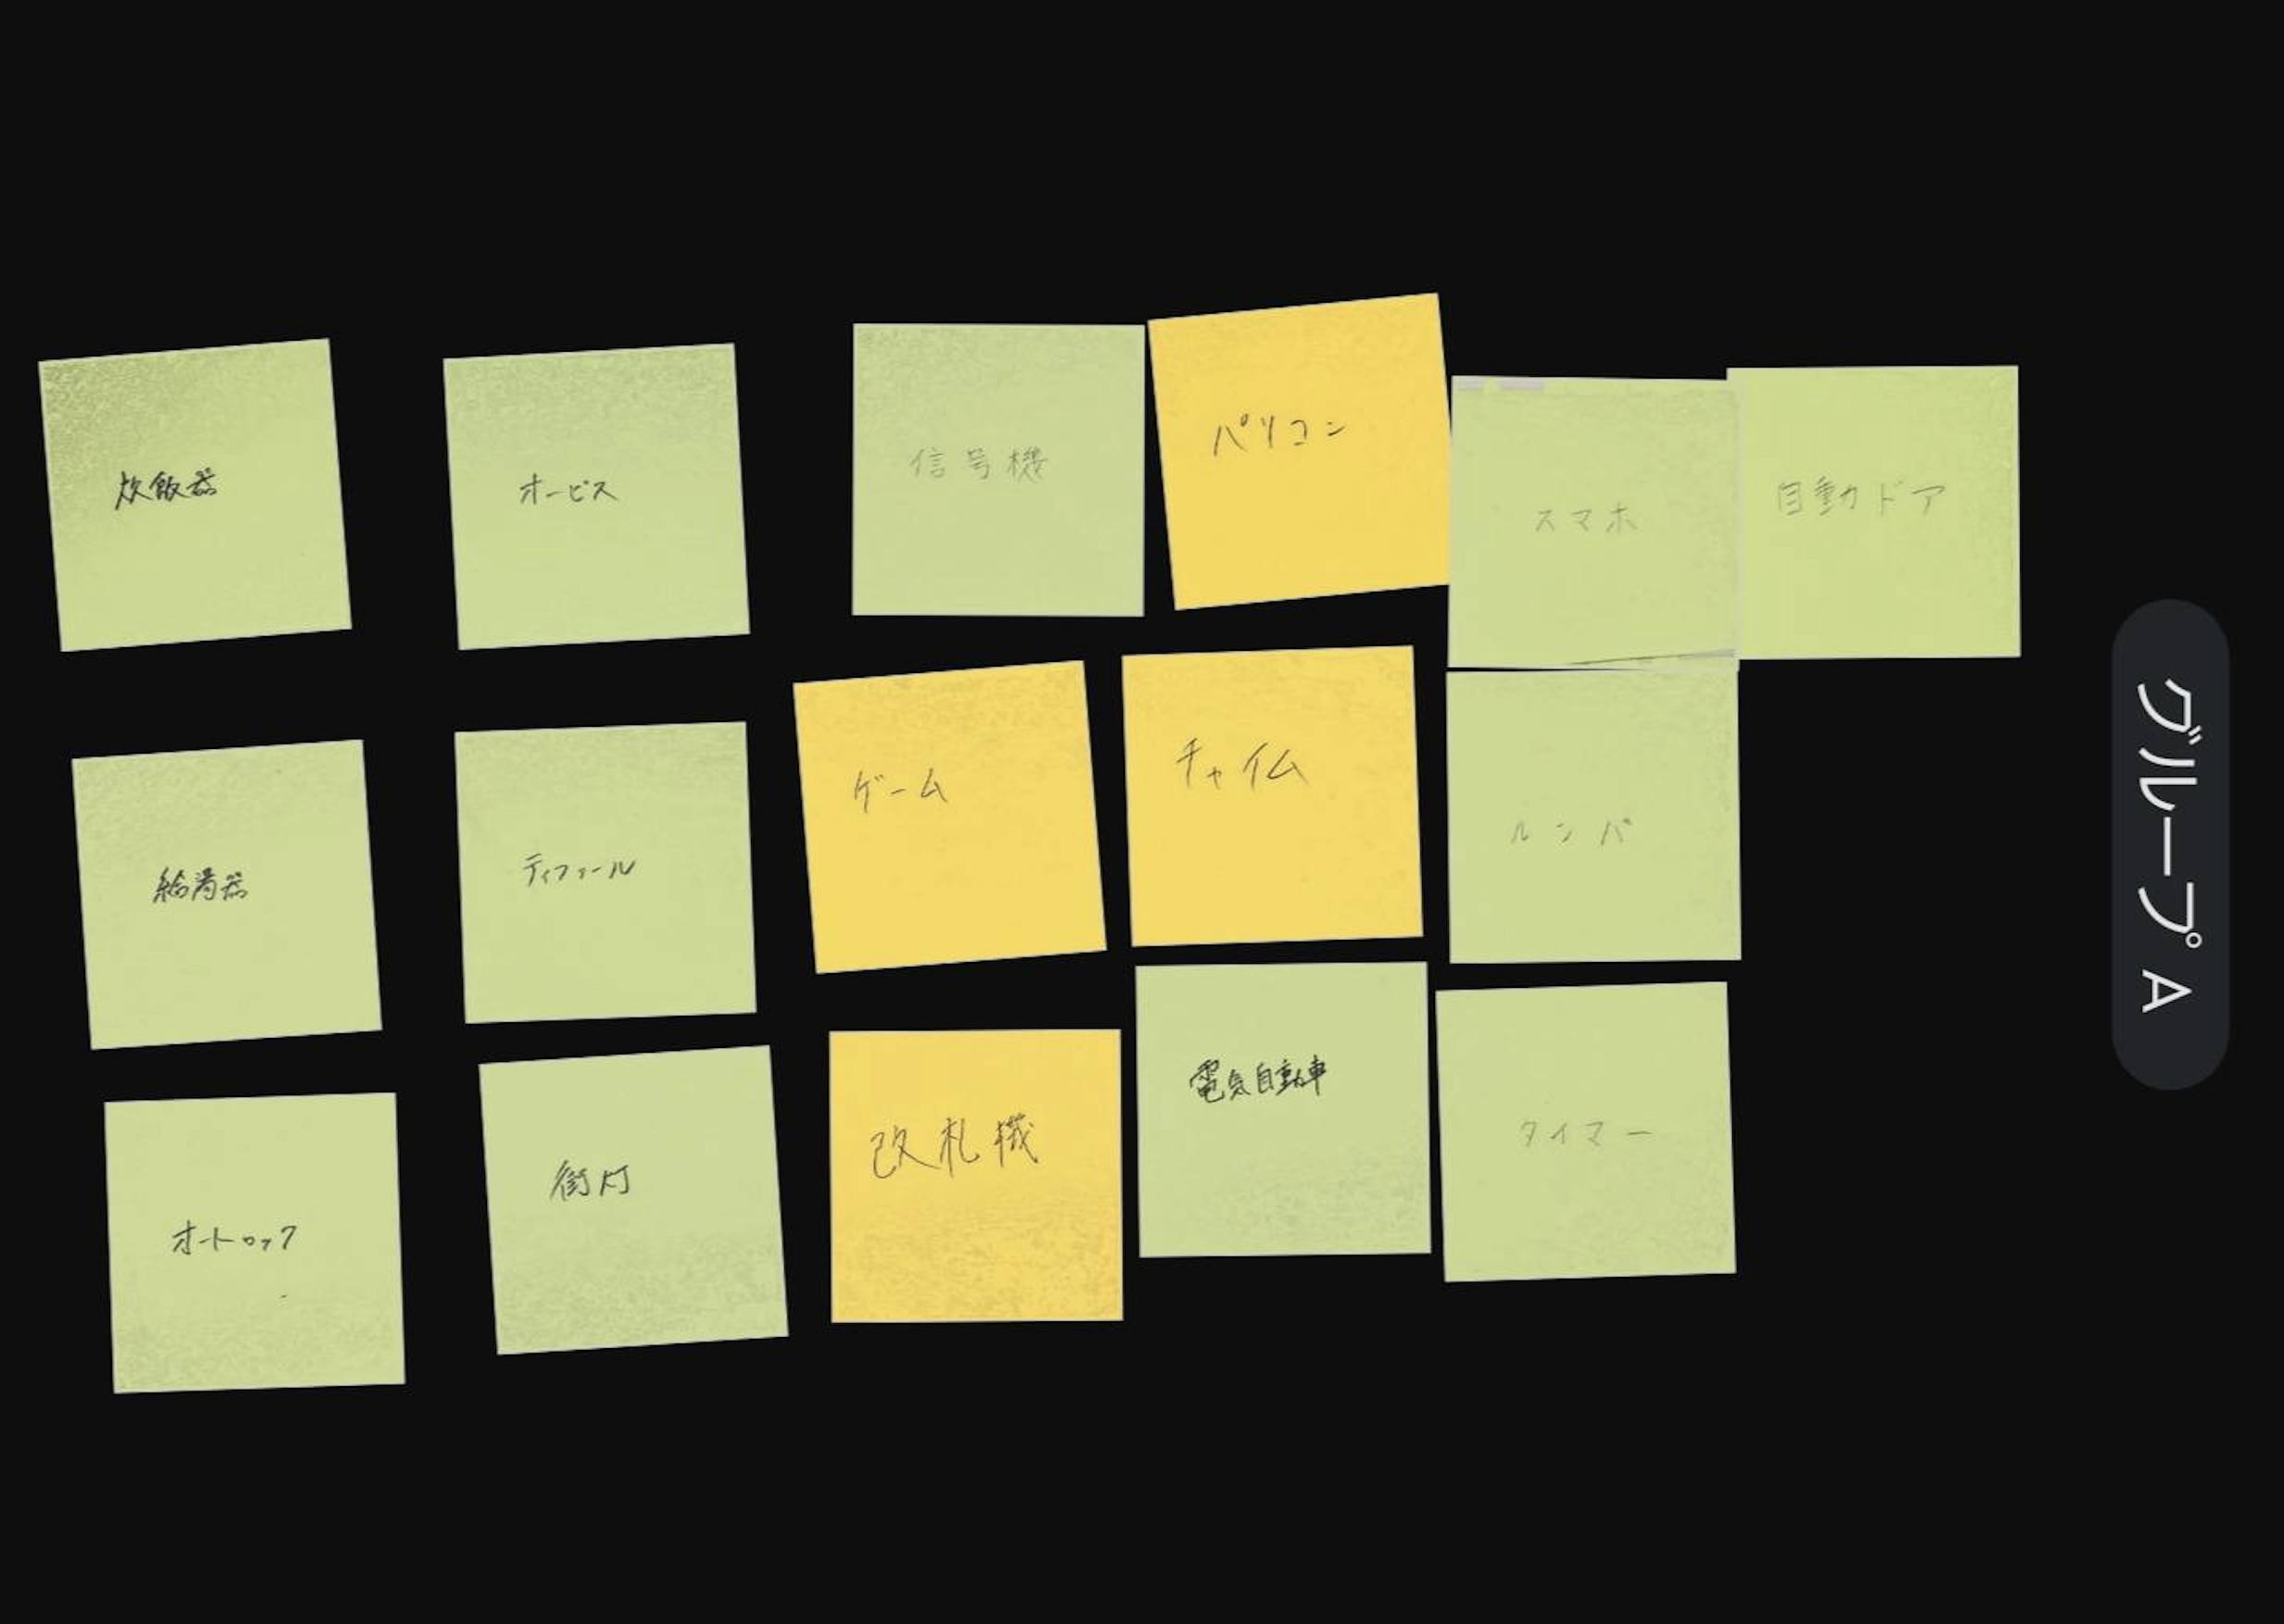 炊飯器
オービス
信号機
パソコン
スマホ
自動ドア
給湯器
ティファール
ゲーム
チャイム
ルンバ
オートロック
街灯
改札機
電気自動車
タイマー
グループ A